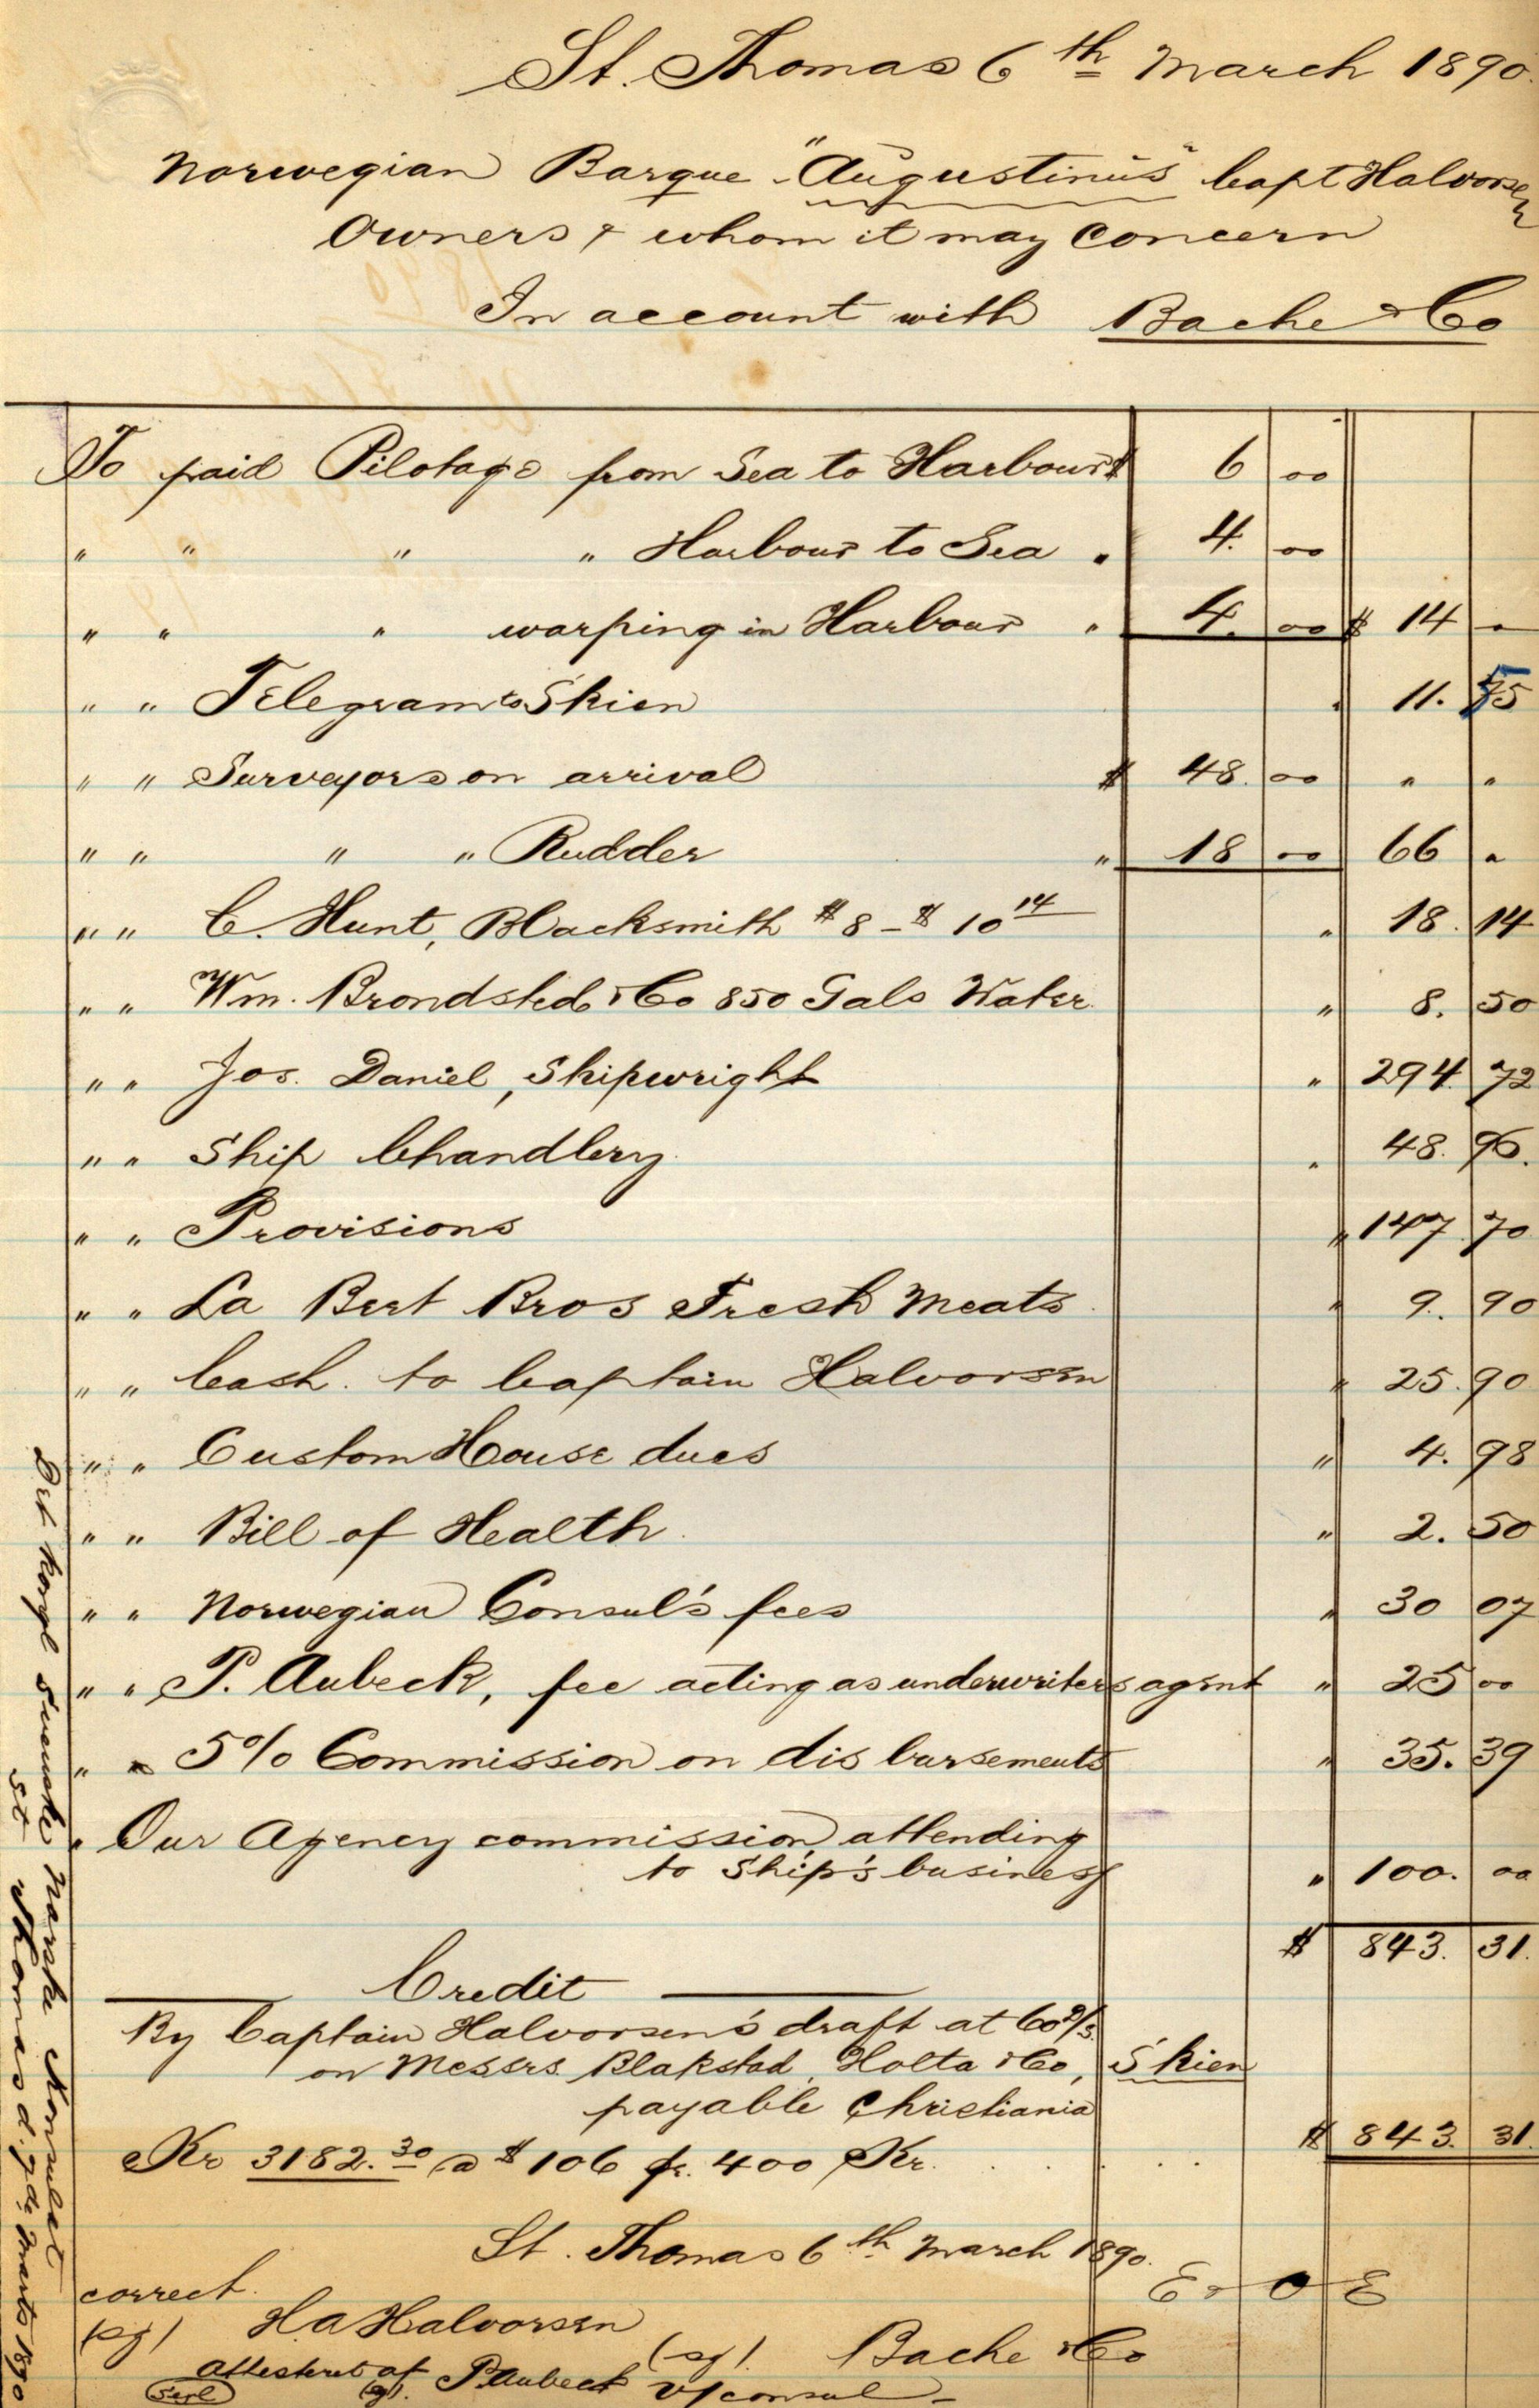 St. Thomas 6th March 1890.
Norwegian Barque "Augustinus" Capt Halvorsen
Owners & whom it may Concern
In account with Bache & Co
To paid Pilotage from Sea to Harbour $ 6 00
" " " " Harbour to Sea " 4. 00
" " " warping in Harbour " 4. 00 $ 14 "
" " Telegram to Skien " 11. 55
" " Surveyors on arrival $ 48. 00 " "
" " " " Rudder " 18 00 66 "
" " C. Hunt, Blacksmith $ 8 - $ 10 14 " 18. 14
" " Wm. Brondsted & Co 850 Gals Water " 8. 50
" " Jos. Daniel, Shipwright " 294. 72
" " Ship Chandlery " 48. 96.
" " Provisions " 147. 70
" " La Bert Bros Fresh Meats " 9. 90
" " Cash to Captain Halvorsen " 25. 90
" " Custom House dues " 4. 98
" " Bill of Health " 2. 50
" " Norwegian Consul's fees " 30 07
" " P. Aubeck, fee acting as underwriters agent " 25 00
" " 5% Commission on disbursements " 35. 39
" Our Agency commission attending
to Ship's business " 100. 00
$ 843. 31.
Credit
By Captain Halvorsen's draft at 60 d/s.
on Messrs. Blakstad, Holta & Co, Skien
payable Christiania
Kr 3182. 30 @ $ 106 fr. 400 Kr. . . . . $ 843. 31.
St. Thomas 6th March 1890.
E & O E
correct.
(sg) H A Halvorsen
(sg). Bache & Co
attesteret af P Aubeck
Seal (sg). V/consul
Det kongl svenske norske Konsulat
St. Thomas d. 7de Marts 1890